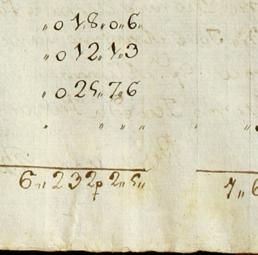 „ 0 18„ 0„ 6
„ 0 12„ 1„ 3
„ 0 25„ 7„ 6
„ „ „ „
6„ 232 p 2„ 5„ 7„ 6